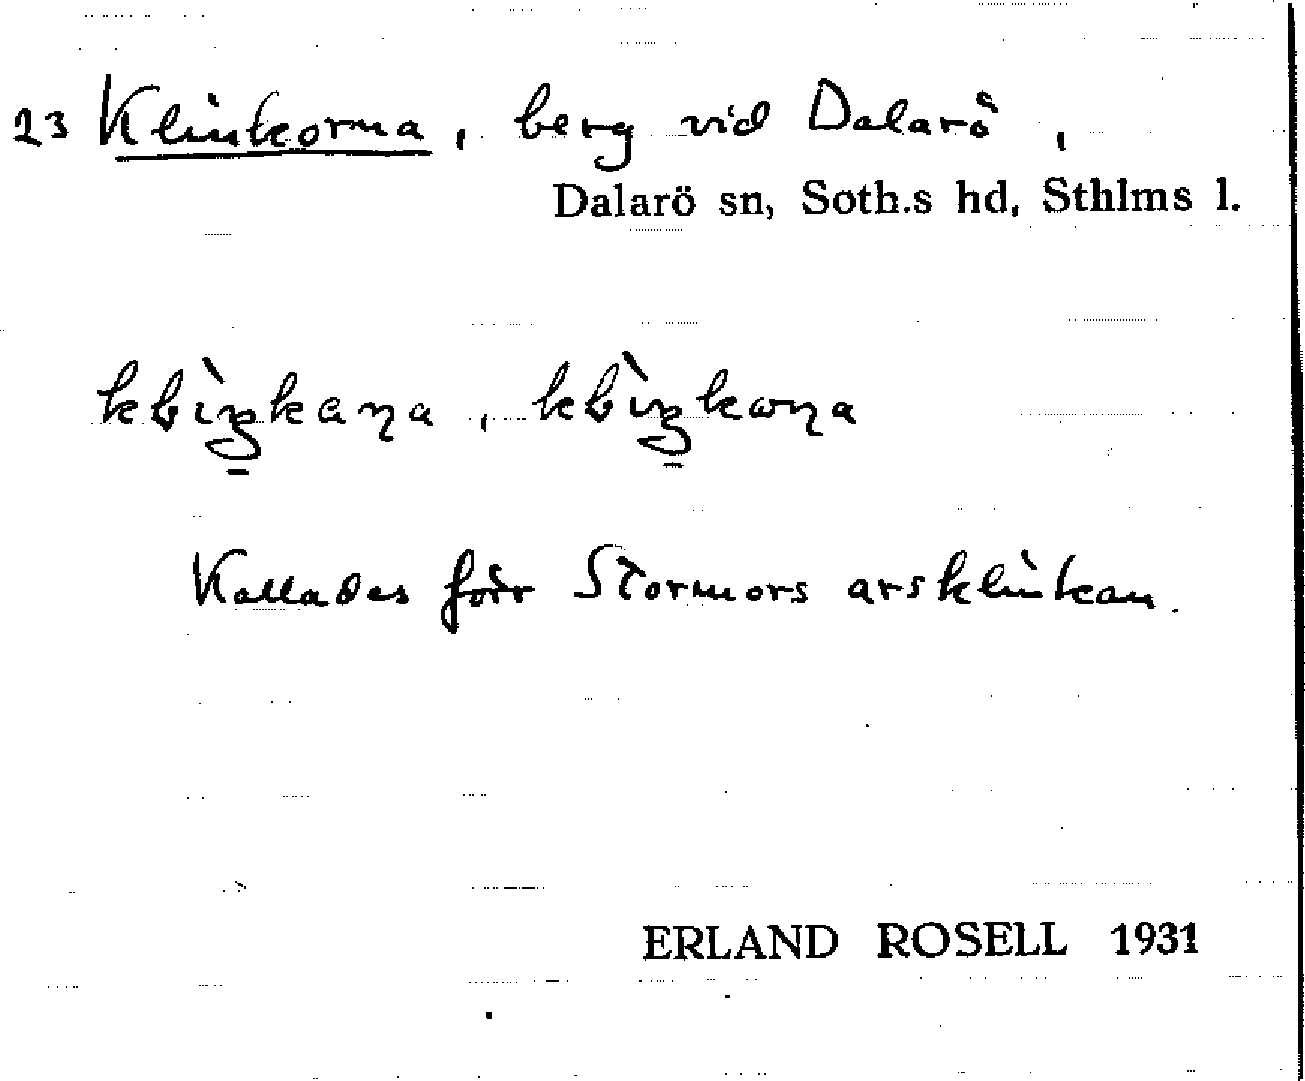 23 Klinkorna, berg vid Dalarö,
Dalarö sn, Soth.s hd, Sthlms l.
Kallades förr Stormors arsklinkan.
ERLAND ROSELL 1931